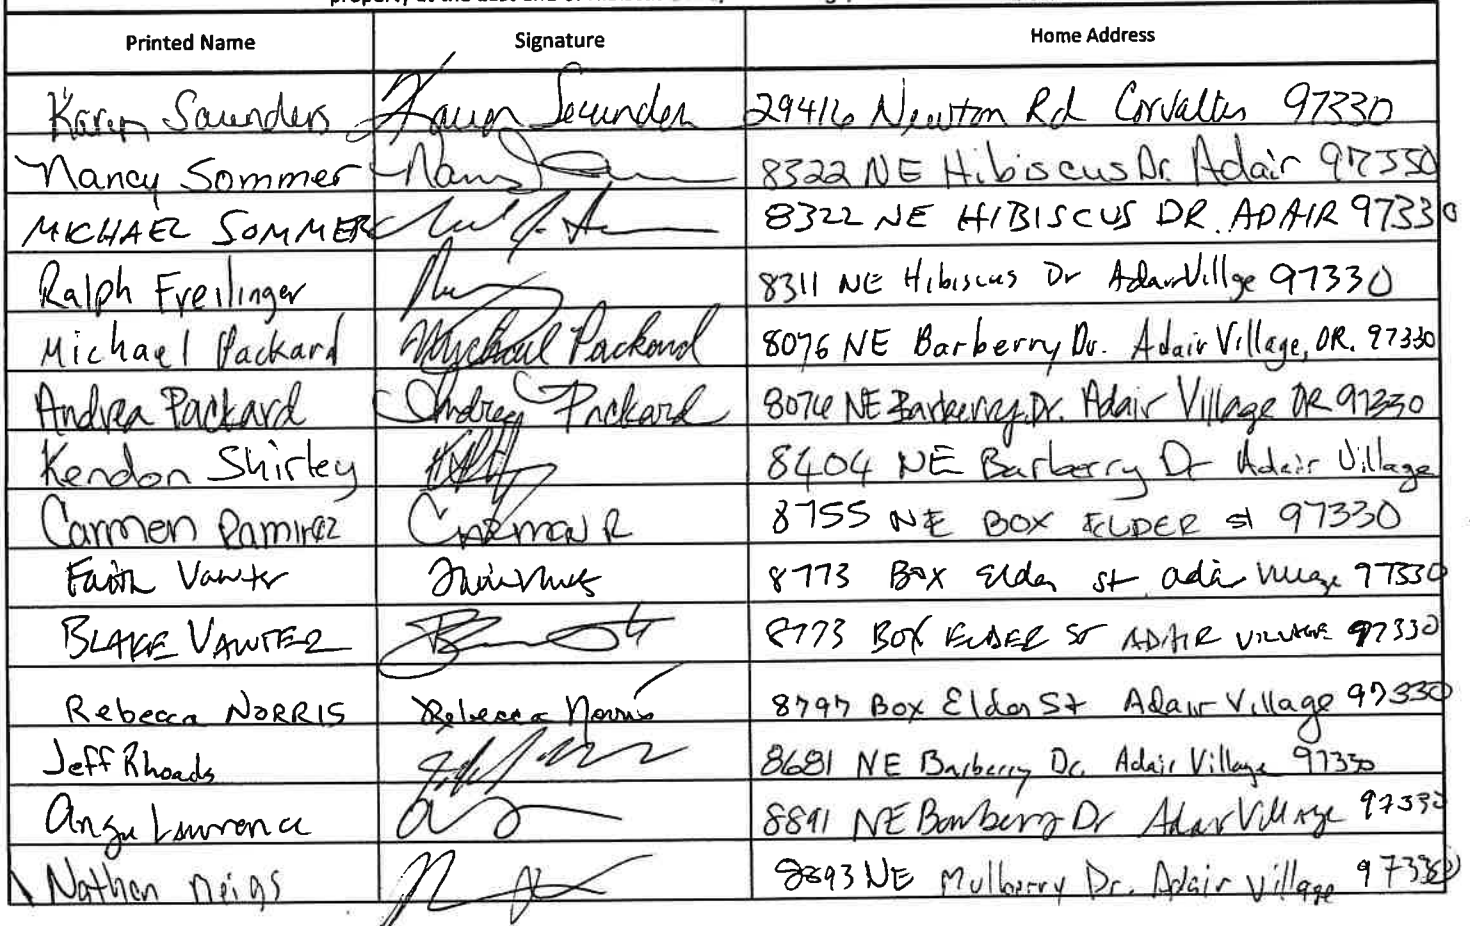 Printed Name Signature Home Address
Karen Saunders Karen Saunders 29416 Newton Rd Corvallis 97330
Nancy Sommer 8322 NE Hibiscus Dr. Adair 97330
MICHAEL SOMMER 8322 NE HIBISCUS DR. ADAIR 97330
Ralph Freilinger 8311 NE Hibiscus Dr Adair Villge 97330
Michael Packard Michael Packard 8076 NE Barberry Dr. Adair Village, OR. 97330
Andrea Packard Andrea Packard 8076 NE Barberry Dr. Adair Village OR 97330
Kendon Shirley 8404 NE Barberry Dr Adair Village
Carmen Ramirez Carmen R 8755 NE BOX ELDER st 97330
Faith Vawter 8773 Box Elder st adair village 97330
BLAKE VAWTER 8773 BOX ELDER ST ADAIR VILLAGE 97330
Rebecca NORRIS Rebecca Norris 8797 Box Elder St Adair Village 97330
Jeff Rhoads 8681 NE Barberry Dr. Adair Village 97330
Lawrence 8891 NE Barberry Dr Adair Village 97330
Nathan 8893 NE Mulberry Dr. Adair Village 97330